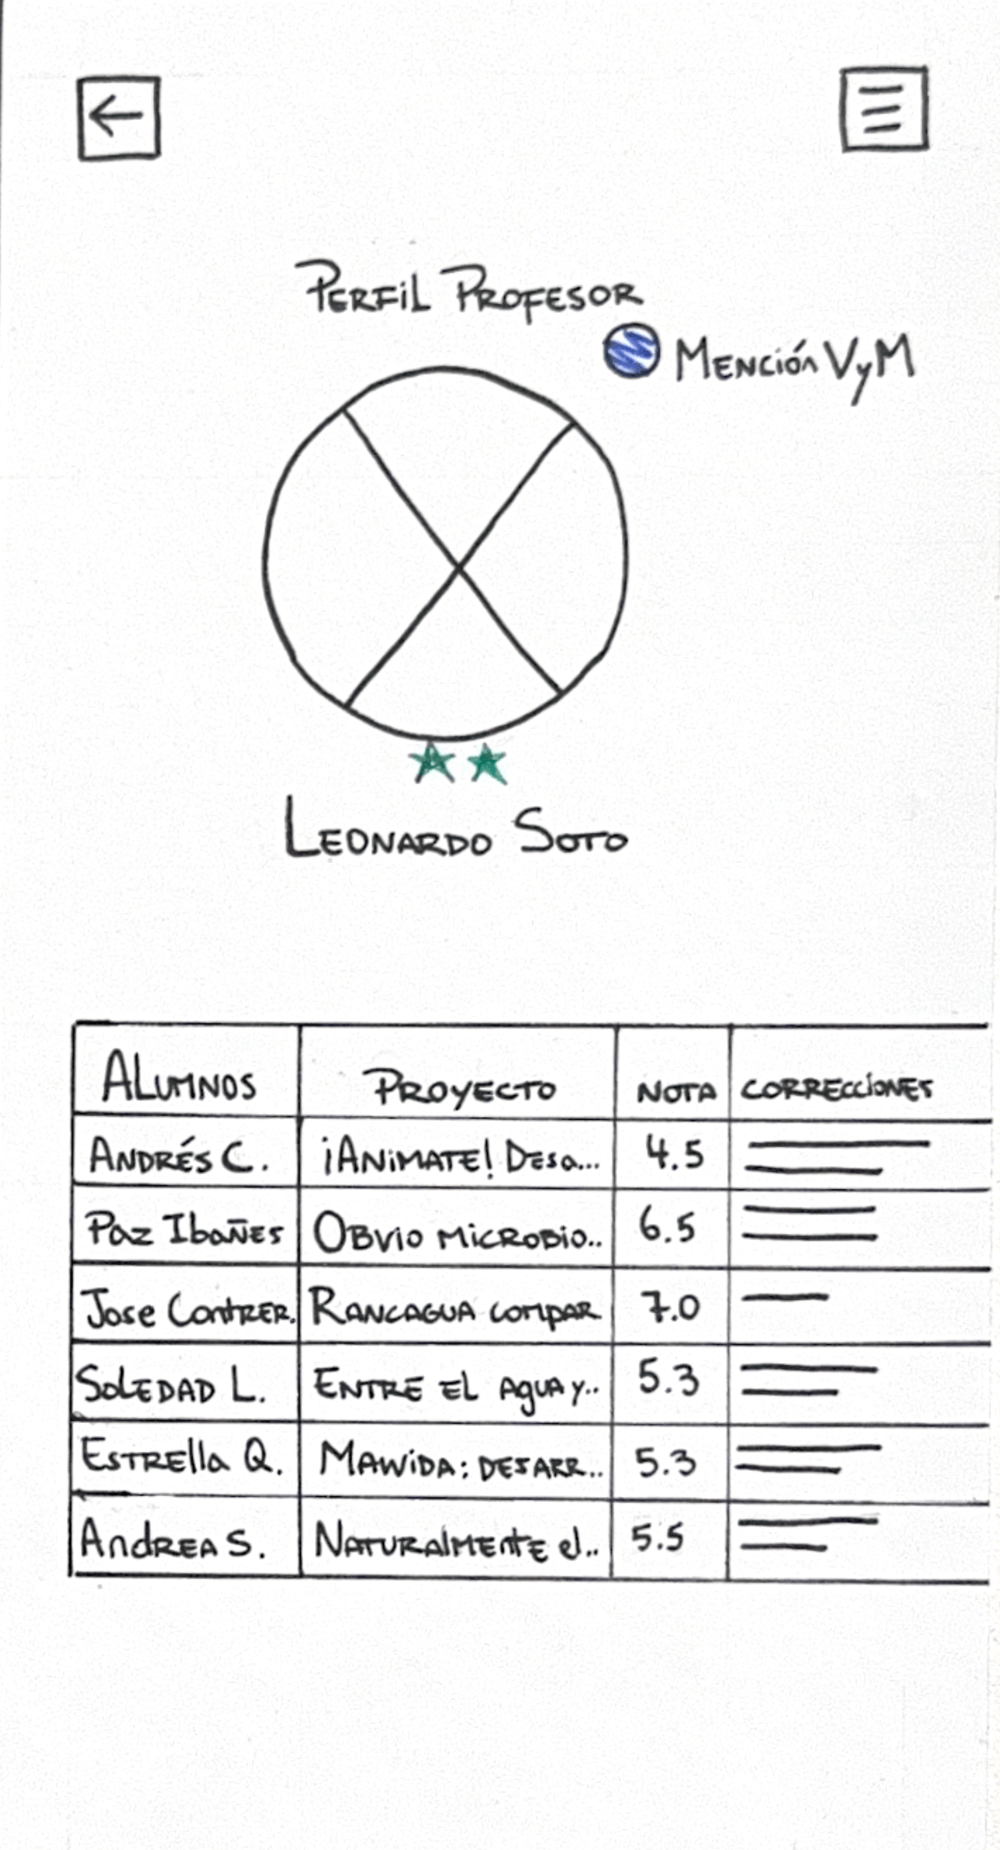 Perfil Profesor
Mención VyM
Leonardo Soto
Alumnos Proyecto Nota Correcciones
Andrés C. ¡Animate! Desa... 4.5
Paz Ibañes Obvio microbio.. 6.5
Jose Contrer. Rancagua compar 7.0
Soledad L. Entre el agua y.. 5.3
Estrella Q. Mawida: desarr.. 5.3
Andrea S. Naturalmente el.. 5.5